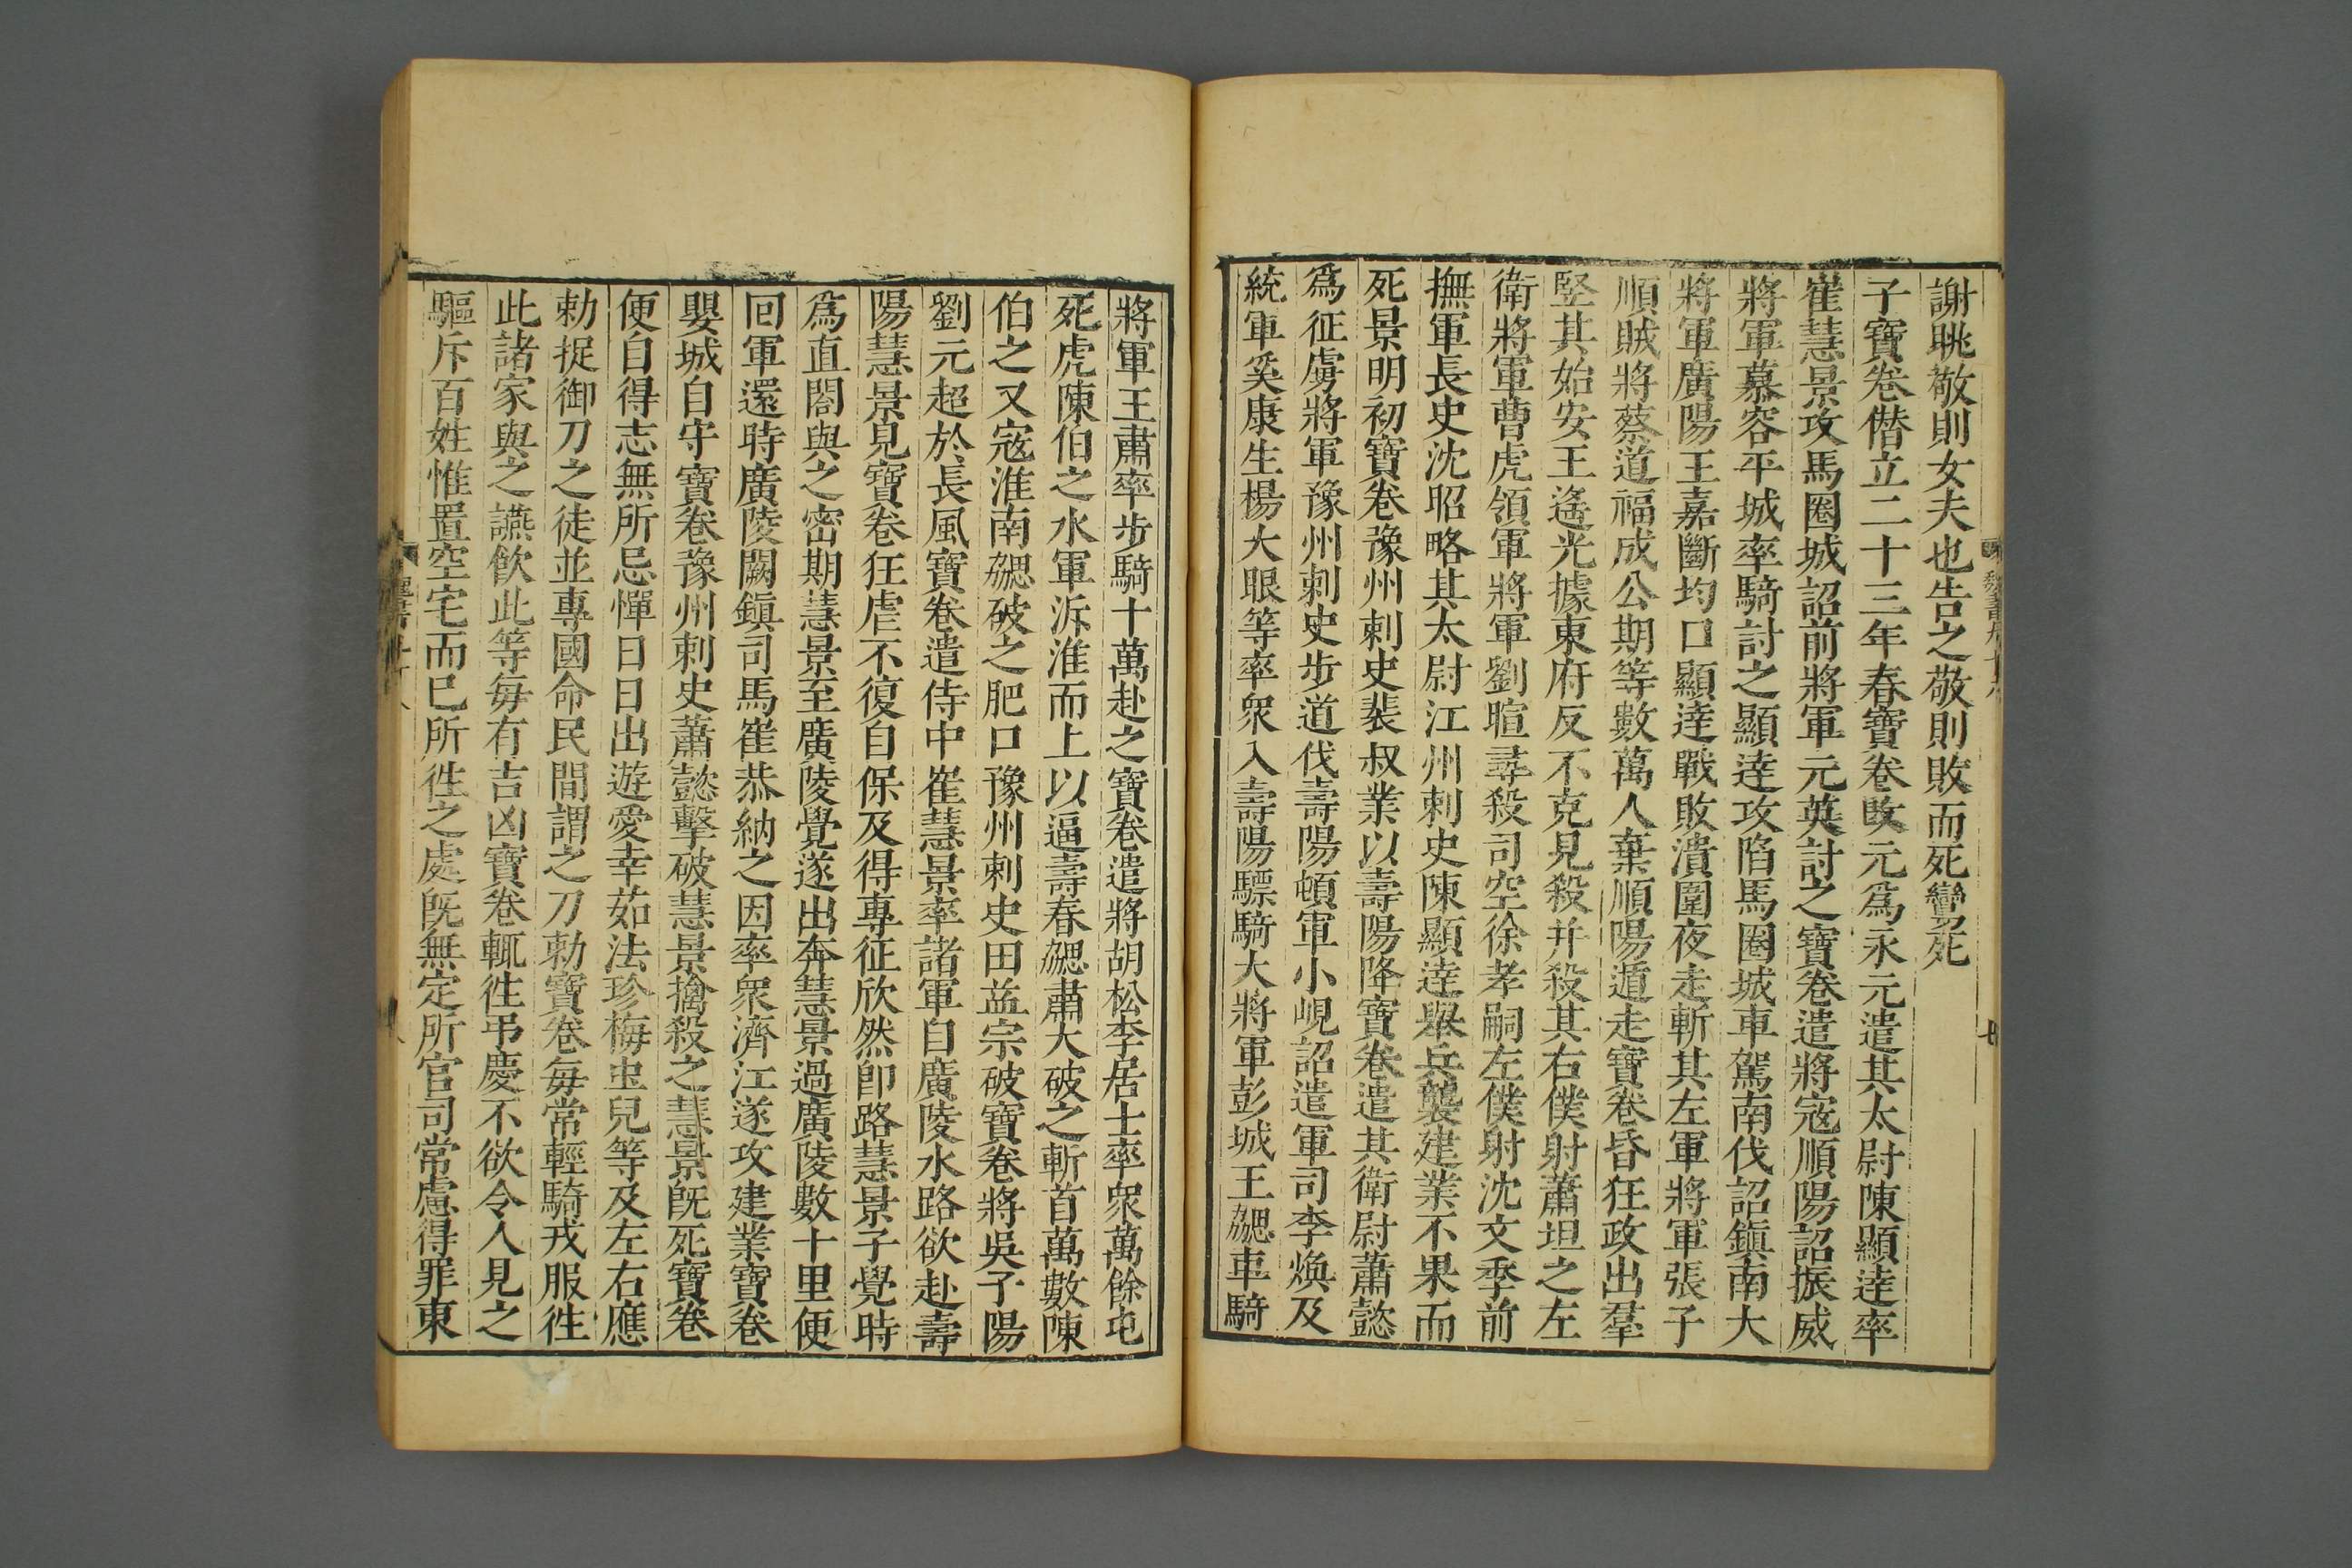 謝眺敬則女夫也告之敬則敗而死鸞死
子寶卷僭立二十三年春寶卷改元爲永元遣其太尉陳顯逹率
崔慧景攻馬圈城詔前將軍元英討之寶卷遣將寇順陽詔振威
將軍慕容平城率騎討之顯逹攻陷馬圈城車駕南伐詔鎭南大
將軍廣陽王嘉斷均口顯逹戰敗潰圍夜走斬其左軍將軍張子
順賊將蔡道福成公期等數萬人棄順陽遁走寶卷昏狂政出羣
竪其始安王遙光據東府反不克見殺并殺其右僕射蕭坦之左
衛將軍曹虎領軍將軍劉暄尋殺司空徐孝嗣左僕射沈文季前
撫軍長史沈昭略其太尉江州刺史陳顯逹舉兵襲建業不果而
死景明初寶卷豫州刺史裴叔業以壽陽降寶卷遣其衛尉蕭懿
爲征虜將軍豫州刺史步道伐壽陽頓軍小峴詔遣軍司李煥及
統軍奚康生楊大眼等率衆入壽陽驃騎大將軍彭城王勰車騎
將軍王肅率步騎十萬赴之寶卷遣將胡松李居士率衆萬餘屯
死虎陳伯之水軍泝淮而上以逼壽春勰肅大破之斬首萬數陳
伯之又寇淮南勰破之肥口豫州刺史田益宗破寶卷將吳子陽
劉元超於長風寶卷遣侍中崔慧景率諸軍自廣陵水路欲赴壽
陽慧景見寶卷狂虐不復自保及得專征欣然卽路慧景子覺時
爲直閤與之密期慧景至廣陵覺遂出奔慧景過廣陵數十里便
回軍還時廣陵闕鎭司馬崔恭納之因率衆濟江遂攻建業寶卷
嬰城自守寶卷豫州刺史蕭懿擊破慧景擒殺之慧景旣死寶卷
便自得志無所忌憚日日出遊愛幸茹法珍梅虫兒等及左右應
勅捉御刀之徒並專國命民間謂之刀勅寶卷每常輕騎戎服徃
此諸家與之讌飮此等每有吉凶寶卷輒徃弔慶不欲令人見之
驅斥百姓惟置空宅而已所徃之處旣無定所官司常慮得罪東